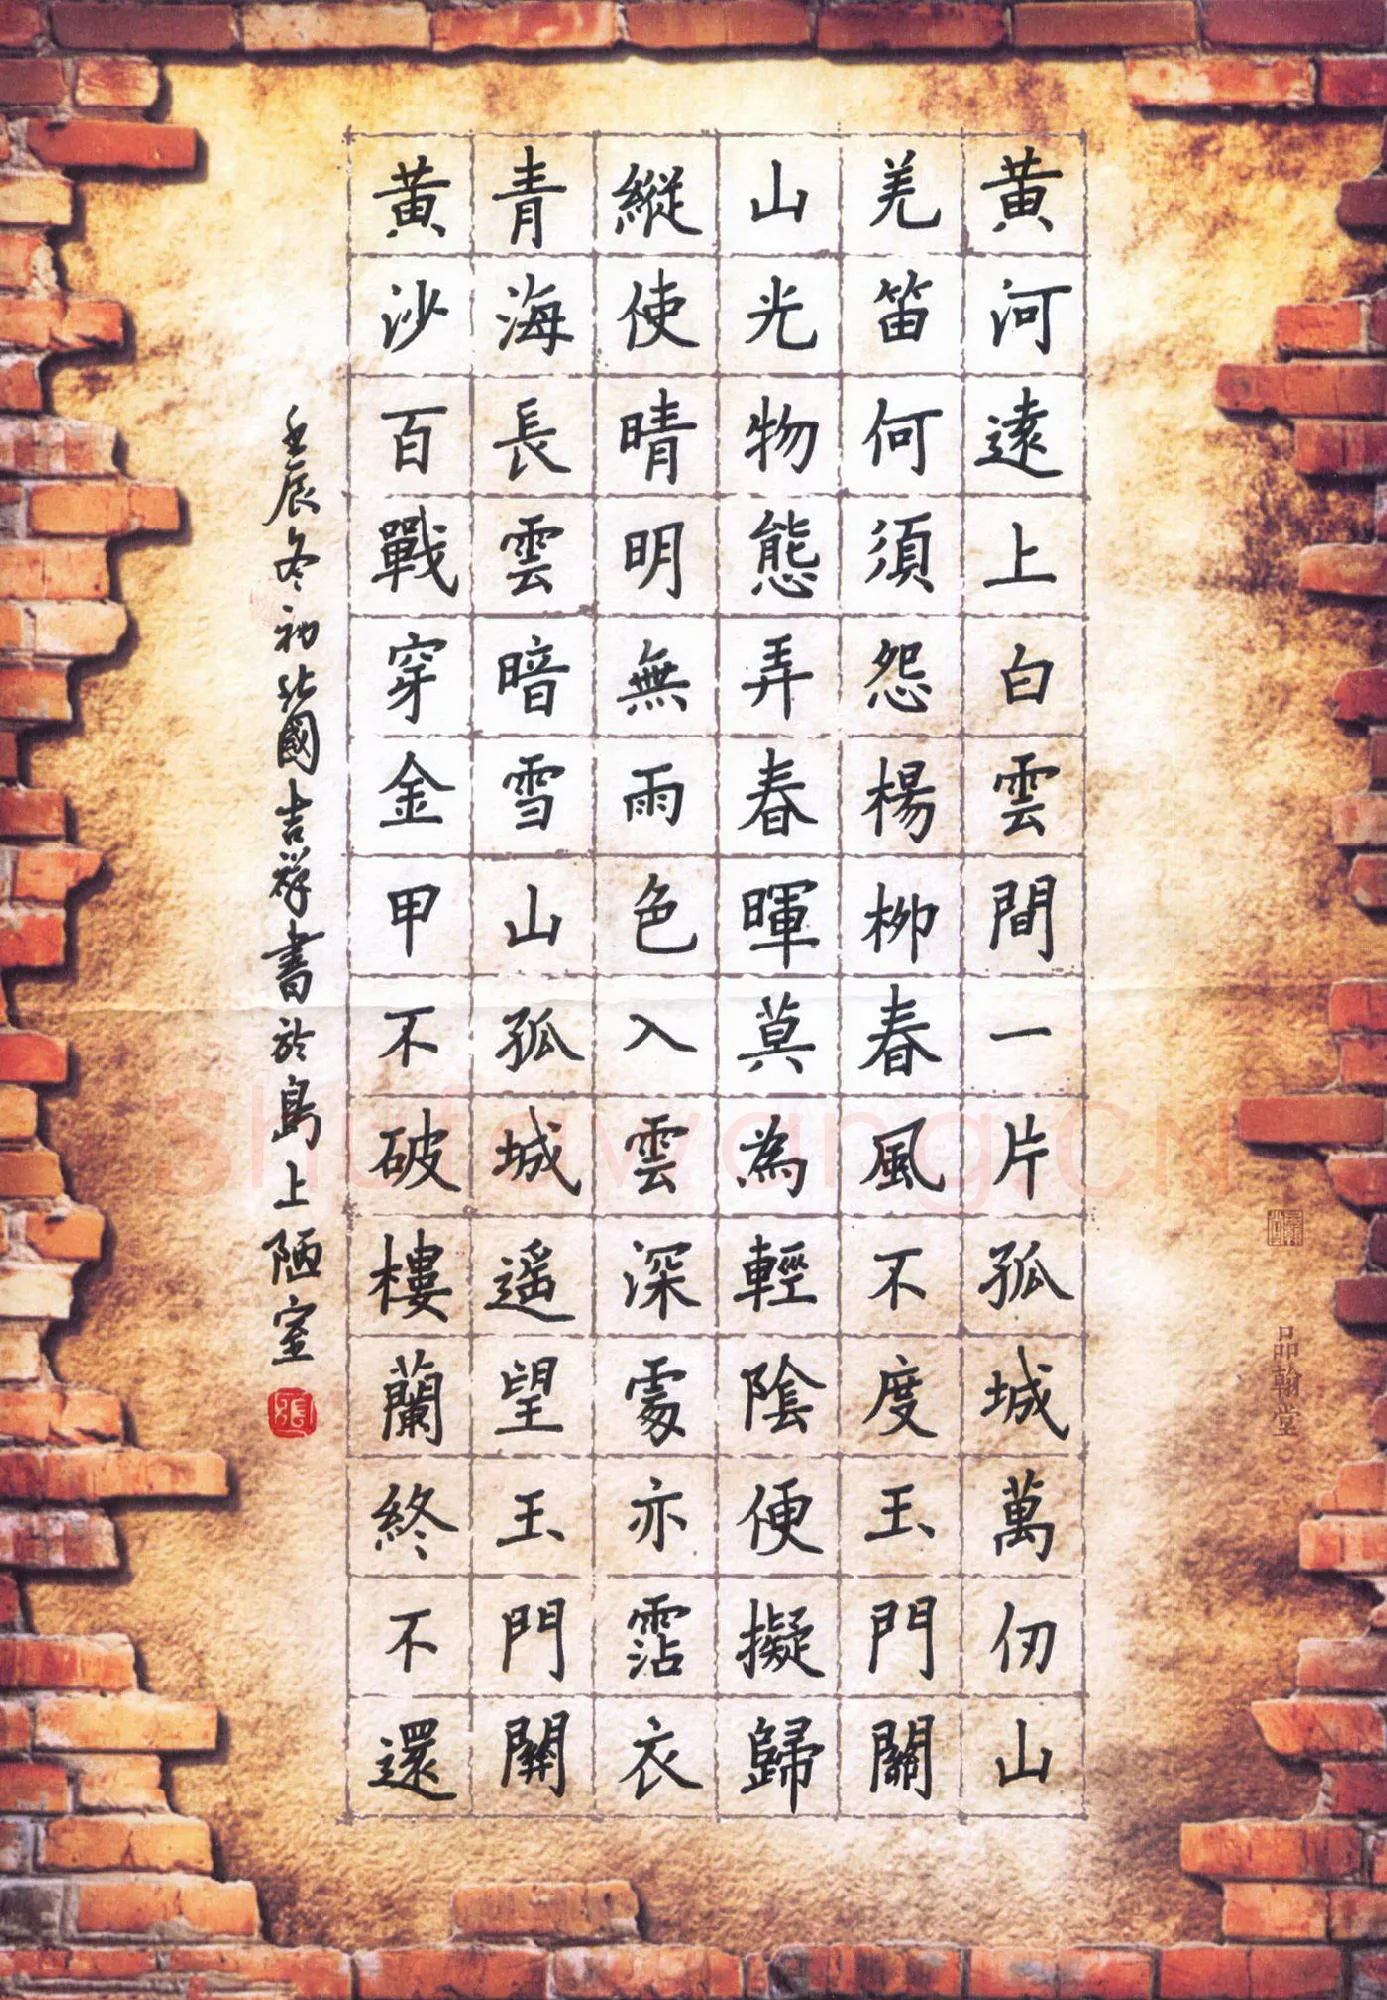 黃河遠上白雲間一片孤城萬仞山
羌笛何須怨楊柳春風不度玉門關
山光物態弄春暉莫為輕陰便擬歸
縱使晴明無雨色入雲深處亦霑衣
青海長雲暗雪山孤城遥望玉門關
黃沙百戰穿金甲不破樓蘭終不還
壬辰冬初北國吉祥書於島上陋室
張
品翰堂
shufawang.CN